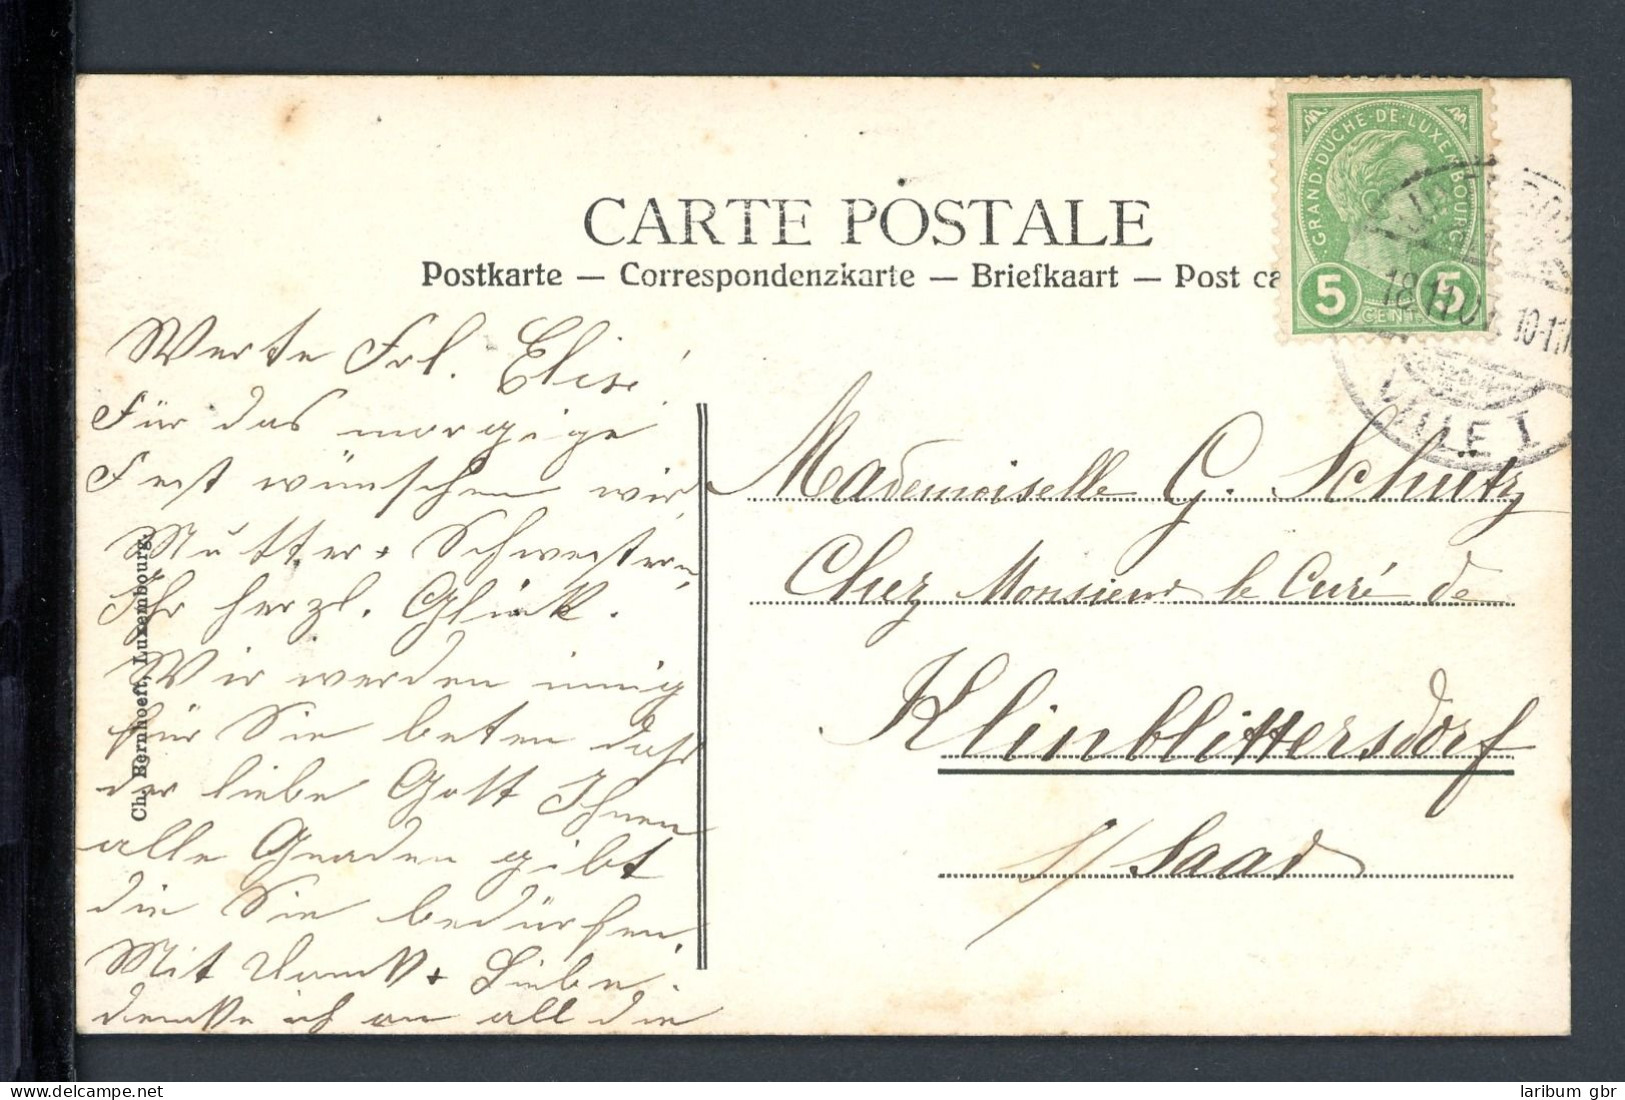 CARTE POSTALE
Postkarte — Correspondenzkarte — Briefkaart — Post ca
GRAND-DUCHÉ-DE-LUXEMBOURG
5 5
CENT.
18.11.07. 10-11
VILLE 1
Werte Frl. Elise!
Für das morgige
Fest wünschen wir,
Mutter + Schwestern,
Ihr herzl. Glück.
Wir werden innig
für Sie beten daß
der liebe Gott Ihnen
alle Gnaden gibt
die Sie bedürfen.
Mit Dank + Liebe
denke ich an all die
Mademoiselle G. Schütz
Chez Monsieur le Curé de
Klinblittersdorf
s/ Saar
Ch. Bernhoeft, Luxembourg.
laribum gbr